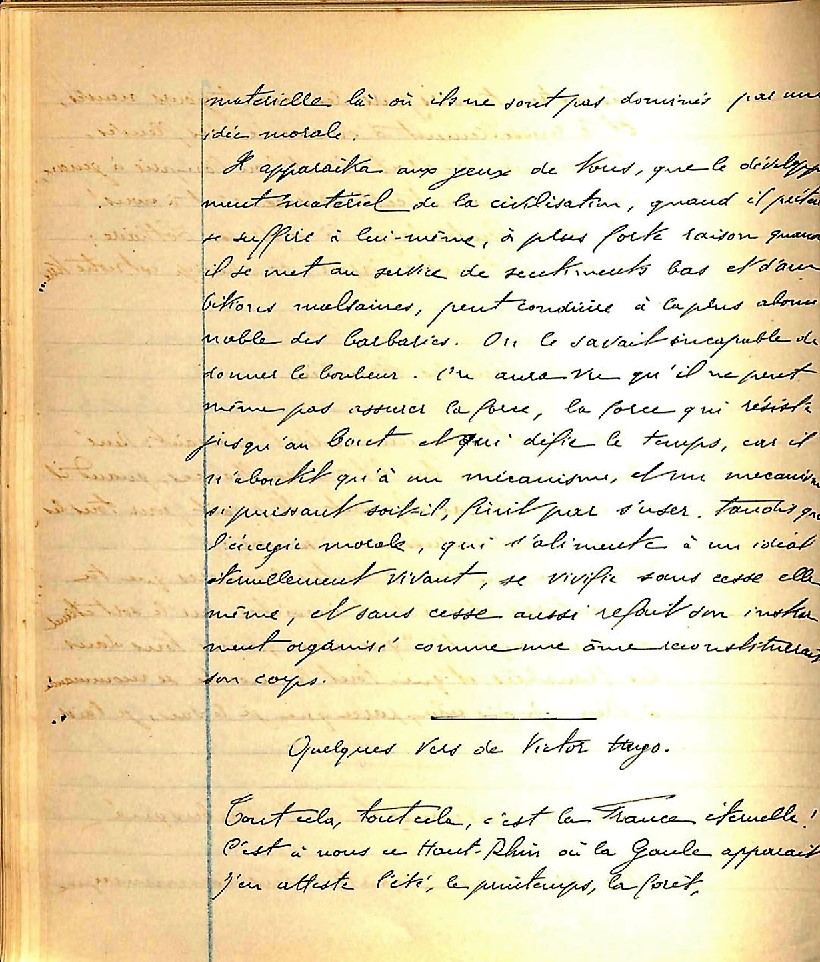 matérielle là où ils ne sont pas dominés par une
idée morale.
Il apparaîtra aux yeux de tous, que le dévelop
ment matériel de la civilisation, quand il préten
se suffire à lui-même, à plus forte raison quand
il se met au service de sentiments bas et d'am
bitions malsaines, peut conduire à la plus abomi
nable des barbaries. On le savait incapable de
donner le bonheur. On aura vu qu'il ne peut
même pas assurer la force, la force qui résiste
jusqu'au bout et qui défie le temps, car il
n'aboutit qu'à un mécanisme, et un mécanism
si puissant soit-il, finit par s'user. tandis que
l'énergie morale, qui s'alimente à un idéal
éternellement vivant, se vivifie sans cesse elle
même, et sans cesse aussi refait son instru
ment organisé comme une âme reconstituerait
son corps.
Quelques vers de Victor Hugo.
Tout cela, tout cela, c'est la France éternelle !
C'est à nous ce Haut-Rhin où la Gaule apparaît
J'en atteste l'été, le printemps, la forêt,